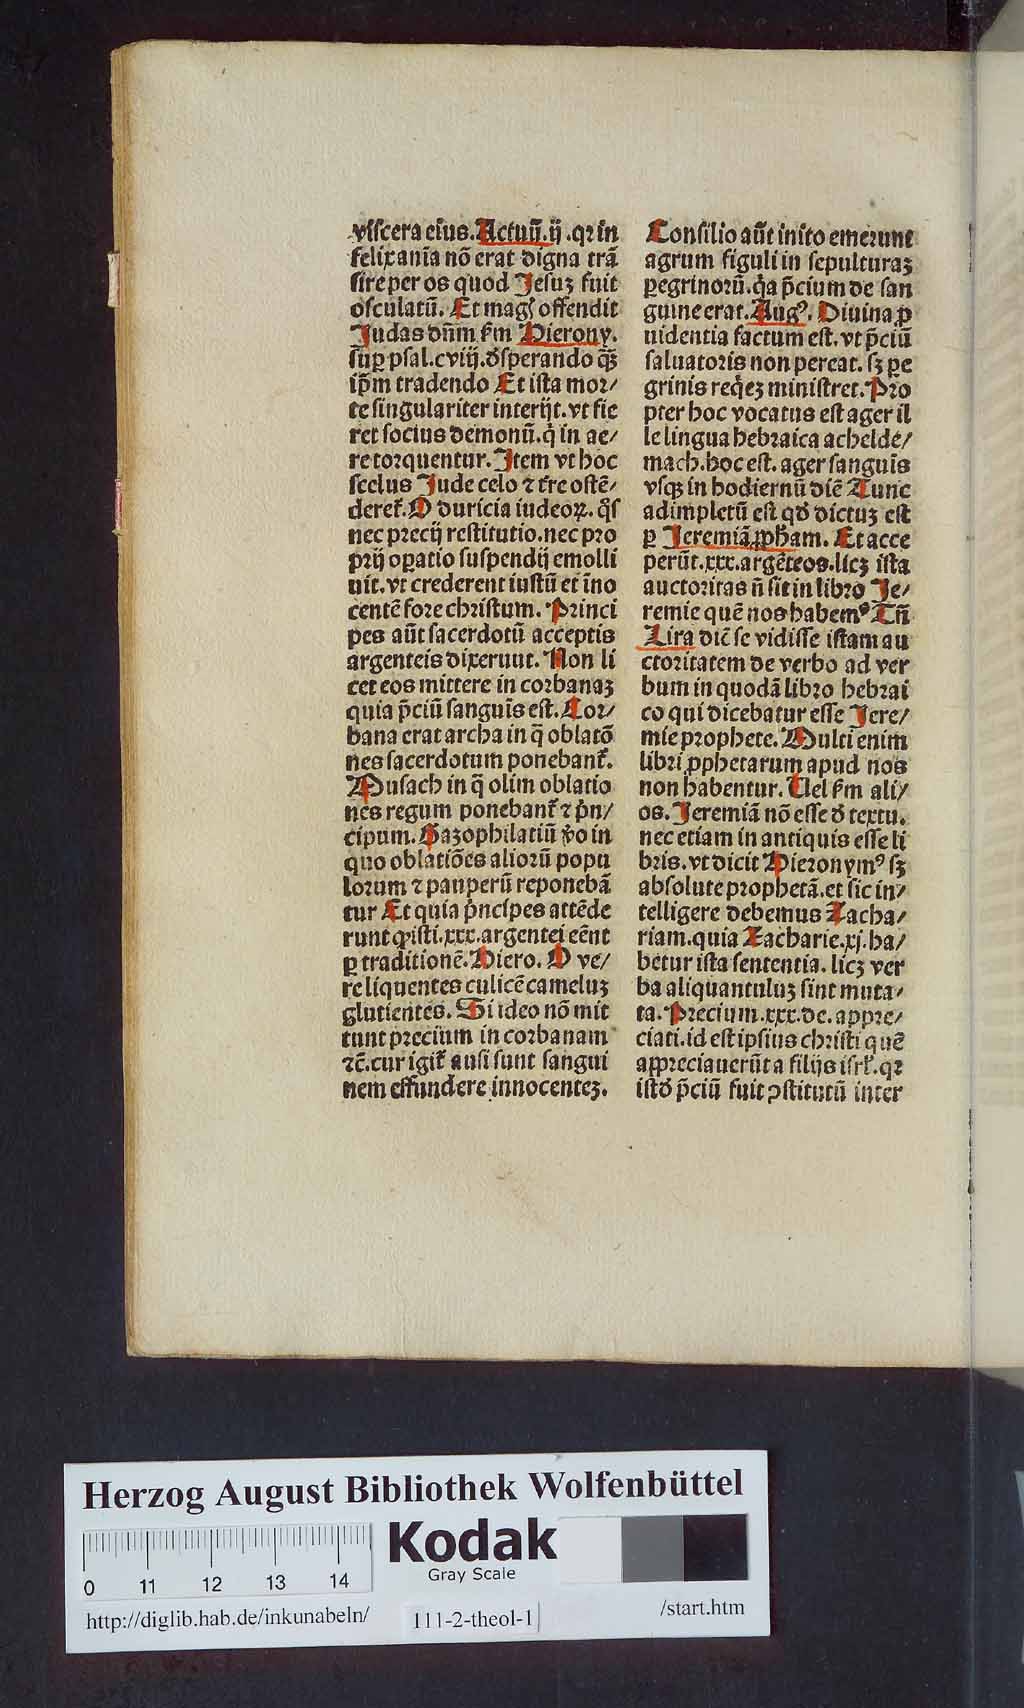 viſcera eiꝰus. Actuũ. ij .qꝛ in
felix ania nõ erat digna trã
ſire per os quod Jeſuʒ fuit
oſculatũ. Et magſ offendit
Judas dñm ẜm Hierony.
ſuꝑ pſal.cviij. ðſperando qʒ̃
ip̃m tradendo Et iſta mor⸗
te ſingulariter interijt. vt fie
ret ſocius demonũ. q̇ in ae⸗
re torquentur. Item vt hoc
ſcelus Jude celo ⁊ tr̃e oſtẽ⸗
deret̃. O duricia iudeoꝝ. q̊ſ
nec precij reſtitutio. nec pro
prij oꝑatio ſuſpendij emolli
uit. vt crederent iuſtũ et ĩno
centẽ fore chriſtum. Princi
pes aũt ſacerdotũ acceptis
argenteis dixerunt. Non li
cet eos mittere in corbanaʒ
quia p̃ciũ ſanguĩs eſt. Cor⸗
bana erat archa in q̃ oblatõ
nes ſacerdotum ponebant̃.
Muſach in q̃ olim oblatio
nes regum ponebant̃ ⁊ pͥn⸗
cipum. Gazophilatiũ v̊o in
quo oblatiões aliorũ popu
lorum ⁊ pauperũ reponebã
tur Et quia pͥncipes attẽde
runt ꝙ iſti.xxx.argentei eẽnt
ꝑ traditionẽ. Hiero. O ve⸗
re liquentes culicẽ cameluʒ
glutientes. Si ideo nõ mit
tunt precium in corbanam
⁊c̃. cur igit̃ auſi ſunt ſangui
nem effundere innocenteʒ.
Conſilio aũt inito emerunt
agrum figuli in ſepulturaʒ
ꝑegrinorũ. q̇a p̃cium de ſan
guine erat. Augꝰ. Diuina ꝓ
uidentia factum eſt. vt p̃ciũ
ſaluatoris non pereat. ſʒ ꝑe
grinis req̇eʒ miniſtret. Pro
pter hoc vocatus eſt ager il
le lingua hebraica achelde⸗
mach. hoc eſt. ager ſanguĩs
vſqʒ in hodiernũ diẽ Tunc
adimpletũ eſt qð dictuʒ eſt
ꝑ Jeremiã ꝓph̃am. Et acce
perũt.xxx.argẽteos.licʒ iſta
auctoritas ñ ſit in libro Je⸗
remie quẽ nos habemꝰ Tñ
Lira diẽ ſe vidiſſe iſtam au
ctoritatem de verbo ad ver
bum in quodã libro hebrai
co qui dicebatur eſſe Jere⸗
mie prophete. Multi enim
libri ꝓphetarum apud nos
non habentur. Uel ẜm ali⸗
os. Jeremiã nõ eſſe ð textu.
nec etiam in antiquis eſſe li
bris. vt dicit Hieronymꝰ ſʒ
abſolute prophetã. et ſic in⸗
telligere debemus Zacha⸗
riam. quia Zacharie.xj. ha⸗
betur iſta ſententia. licʒ ver
ba aliquantuluʒ ſint muta⸗
ta. Precium.xxx.de. appre⸗
ciati. id eſt ipſius chriſti quẽ
appreciauerũt a filijs iſrl̃. qꝛ
iſtð p̃ciũ fuit ꝯſtitutũ inter
Herzog August Bibliothek Wolfenbüttel
Kodak
Gray Scale
0 11 12 13 14
http://diglib.hab.de/inkunabeln/
111-2-theol-1
/start.htm